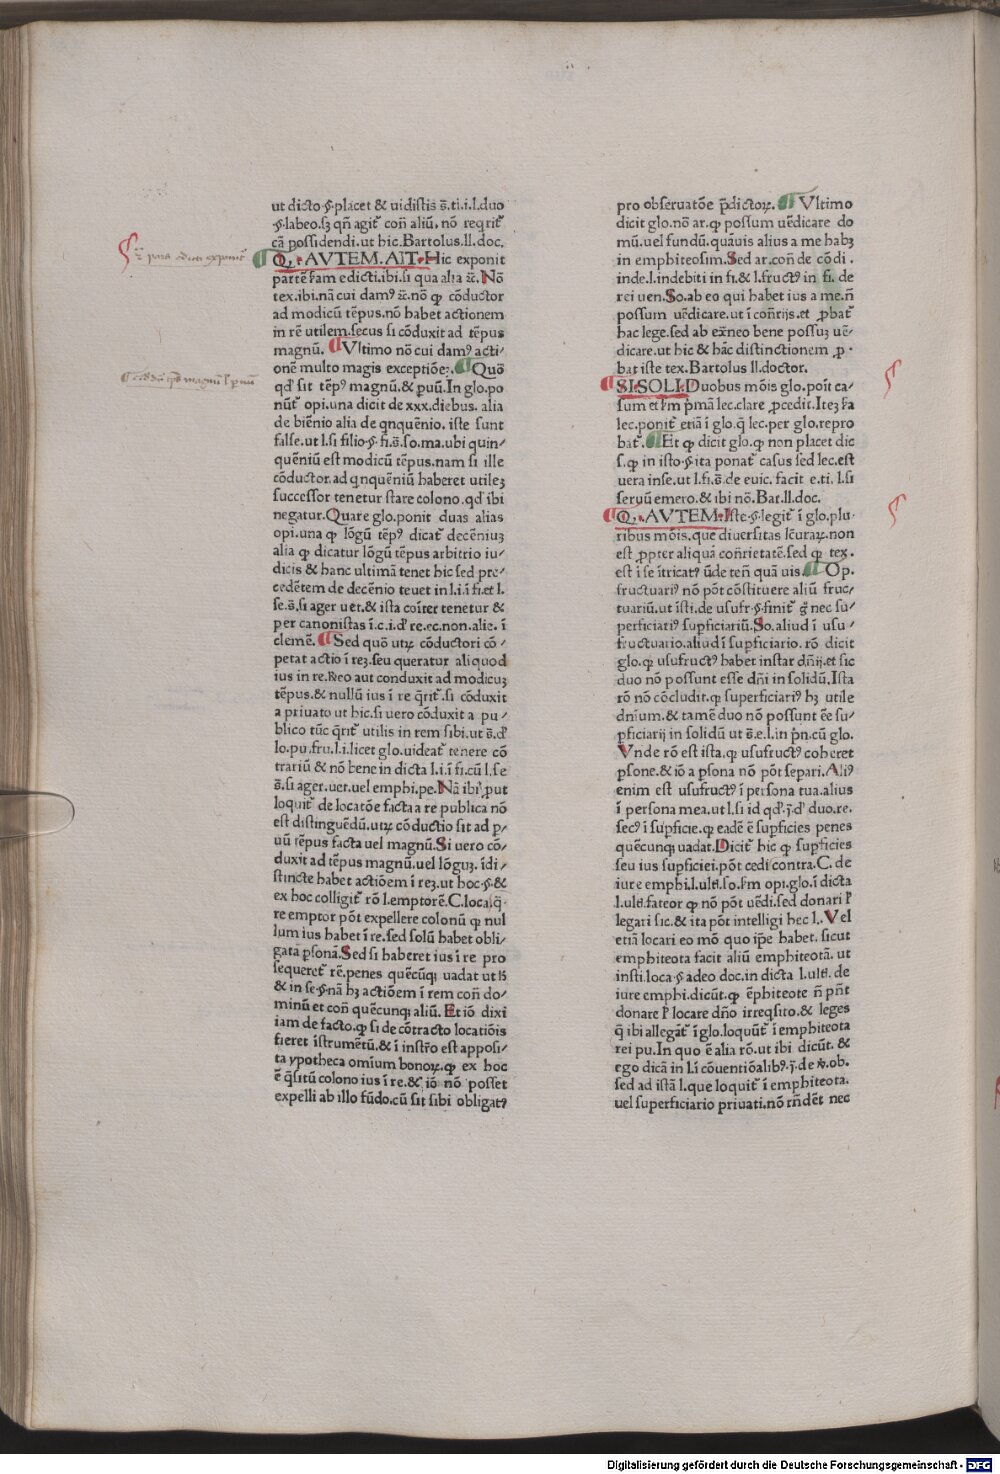 ut dicto.§.placet & uidistis s̄.ti.i.l.duo
§.labeo.sꝫ qn̄ agit᷑ con̄ aliū, nō reqrit᷑
cā possidendi.ut hic.Bartolus.ll.doc.
Q. AVTEM.AIT. Hic exponit
partē s̄am edicti.ibi.si qua alia ⁊c̄. Nō
tex.ibi.nā cui damꝰ ⁊c̄.nō ꝙ cōductor
ad modicū tēpus.nō habet actionem
in rē utilem.secus si cōduxit ad tēpus
magnū. Vltimo nō cui damꝰ acti⸗
onē multo magis exceptiōeꝫ. Quō
qd̓ sit tēpꝰ magnū.& ꝑuū.In glo.po
nūt᷑ opi.una dicit de xxx.diebus. alia
de biēnio alia de qnquēnio. iste sunt
false.ut l.si filio.§.fi.s̄.so.ma.ubi quin⸗
quēniū est modicū tēpus.nam si ille
cōductor.ad qnquēniū haberet utileꝫ
successor tenetur stare colono.qd̓ ibi
negatur.Quare glo.ponit duas alias
opi.una ꝙ lōgū tēpꝰ dicat᷑ decēniuꝫ
alia ꝙ dicatur lōgū tēpus arbitrio iu⸗
dicis & hanc ultimā tenet hic sed pre⸗
cedētem de decēnio teuet in l.i.ī fi.et l.
se.s̄.si ager uet.& ista coīter tenetur &
per canonistas ī.c.i.d̓ re.ec.non.alie. ī
clemē. Sed quō utꝝ cōductori cō⸗
petat actio ī reꝫ.seu queratur aliquod
ius in re.Reo aut conduxit ad modicuꝫ
tēpus.& nullū ius ī re q̄rit᷑.si cōduxit
a priuato ut hic.si uero cōduxit a pu⸗
blico tūc q̄rit᷑ utilis in rem sibi.ut s̄.d̓
lo.pu.fru.l.i.licet glo.uideat᷑ tenere cō
trariū & nō bene in dicta l.i.ī fi.cū l.se
s̄.si ager.uet.uel emphi.pe. Nā ibi ꝓut
loquit᷑ de locatōe facta a re publica nō
est distinguēdū.utꝝ cōductio sit ad ꝑ⸗
uū tēpus facta uel magnū. Si uero cō⸗
duxit ad tēpus magnū.uel lōguꝫ.īdi⸗
stincte habet actiōem ī reꝫ.ut hoc.§.&
ex hoc colligit᷑ rō l.emptorē.C.loca.q̄⸗
re emptor pōt expellere colonū ꝙ nul
lum ius habet ī re.sed solū habet obli⸗
gatā ꝑsonā. Sed si haberet ius ī re pro
sequeret᷑ rē.penes quēcūqꝫ uadat ut
& in se.§.nā hꝫ actiōem ī rem con̄ do⸗
minū et con̄ quēcunqꝫ aliū. Et iō dixi
iam de facto.ꝙ si de cōtracto locatiōis
fieret īstrumētū.& ī instro est apposi⸗
ta ypotheca omium bonoꝝ.ꝙ ex hoc
ē q̄sitū colono ius ī re.& iō nō posset
expelli ab illo fūdo.cū sit sibi obligatꝰ
pro obseruatōe p̄dictoꝝ. Vltimo
dicit glo.nō ar.ꝙ possum uēdicare do
mū.uel fundū.quāuis alius a me habꝫ
in emphiteosim. Sed ar.con̄ de cōdi⸗
inde.l.indebiti in fi.& l.fructꝰ in fi. de
rei uen. So.ab eo qui habet ius a me.n̄
possum uēdicare.ut ī con̄rijs.et ꝓbat᷑
hac lege.sed ab exn̄eo bene possuꝫ uē⸗
dicare.ut hic & hāc distinctionem ꝓ⸗
bat iste tex.Bartolus ll.doctor.
SI.SOLI. Duobus mōis glo.poīt ca⸗
sum et s̄m p̄mā lec.clare ꝓcedit.Iteꝫ s̄a
lec.ponit᷑ etiā ī glo.q̄ lec.per glo.repro
bat᷑. Et ꝙ dicit glo.ꝙ non placet dic
s.ꝙ in isto.§.ita ponat᷑ casus sed lec.est
uera inse.ut l.fi.s̄.de euic. facit e.ti. l.si
seruū emero.& ibi nō.Bar.ll.doc.
Q. AVTEM. Iste.§.legit᷑ ī glo.plu⸗
ribus mōis.que diuersitas lc̄uraꝝ.non
est ꝓpter aliquā con̄rietatē.sed ꝙ tex.
est ī se ītricat᷑ ūde ten̄ quā uis. Op.
fructuariꝰ nō pōt cōstituere aliū fruc⸗
tuariū.ut isti.de usufr.§.finit᷑ g̊ nec su⸗
perficiariꝰ supficiariū. So.aliud ī usu⸗
fructuario.aliud ī supficiario. rō dicit
glo.ꝙ usufructꝰ habet instar dn̄ij.et sic
duo nō possunt esse dn̄i in solidū.Ista
rō nō cōcludit.ꝙ superficiariꝰ hꝫ utile
dnium.& tamē duo nō possunt ēe su⸗
ꝑficiarij in solidū ut s̄.e.l.iti p̄n.cū glo.
Vnde rō est ista.ꝙ usufructꝰ coheret
ꝑsone.& iō a ꝑsona nō pōt separi. Aliꝰ
enim est usufructꝰ ī persona tua.alius
ī persona mea.ut l.si id qd̓.j̄.d̓ duo.re.
secꝰ ī supficie.ꝙ eadē ē supficies penes
quēcunqꝫ uadat. Dicit᷑ hic ꝙ supficies
seu ius supficiei.pōt cedi contra.C. de
iure emphi.l.ulti.so.s̄m opi.glo.ī dicta
l.ulti.fateor ꝙ nō pōt uēdi.sed donari
legari sic.& ita pōt intelligi hec l.. Vel
etiā locari eo mō quo ip̄e habet. sicut
emphiteota facit aliū emphiteotā. ut
insti.loca.§.adeo.doc.in dicta l.ulti. de
iure emphi.dicūt.ꝙ ēphiteote n̄ pn̄t
donare locare dn̄o irreqsito.& leges
q̄ ibi allegāt᷑ ī glo.loquūt᷑ ī emphiteota
rei pu.In quo ē alia rō.ut ibi dicūt. &
ego dicā in l.i cōuentiōalibꝰ.j̄.de .ob.
sed ad istā l.que loquit᷑ ī emphiteota.
uel superficiario priuati.nō rn̄dēt nec
Digitalisierung gefördert durch die Deutsche Forschungsgemeinschaft - DFG